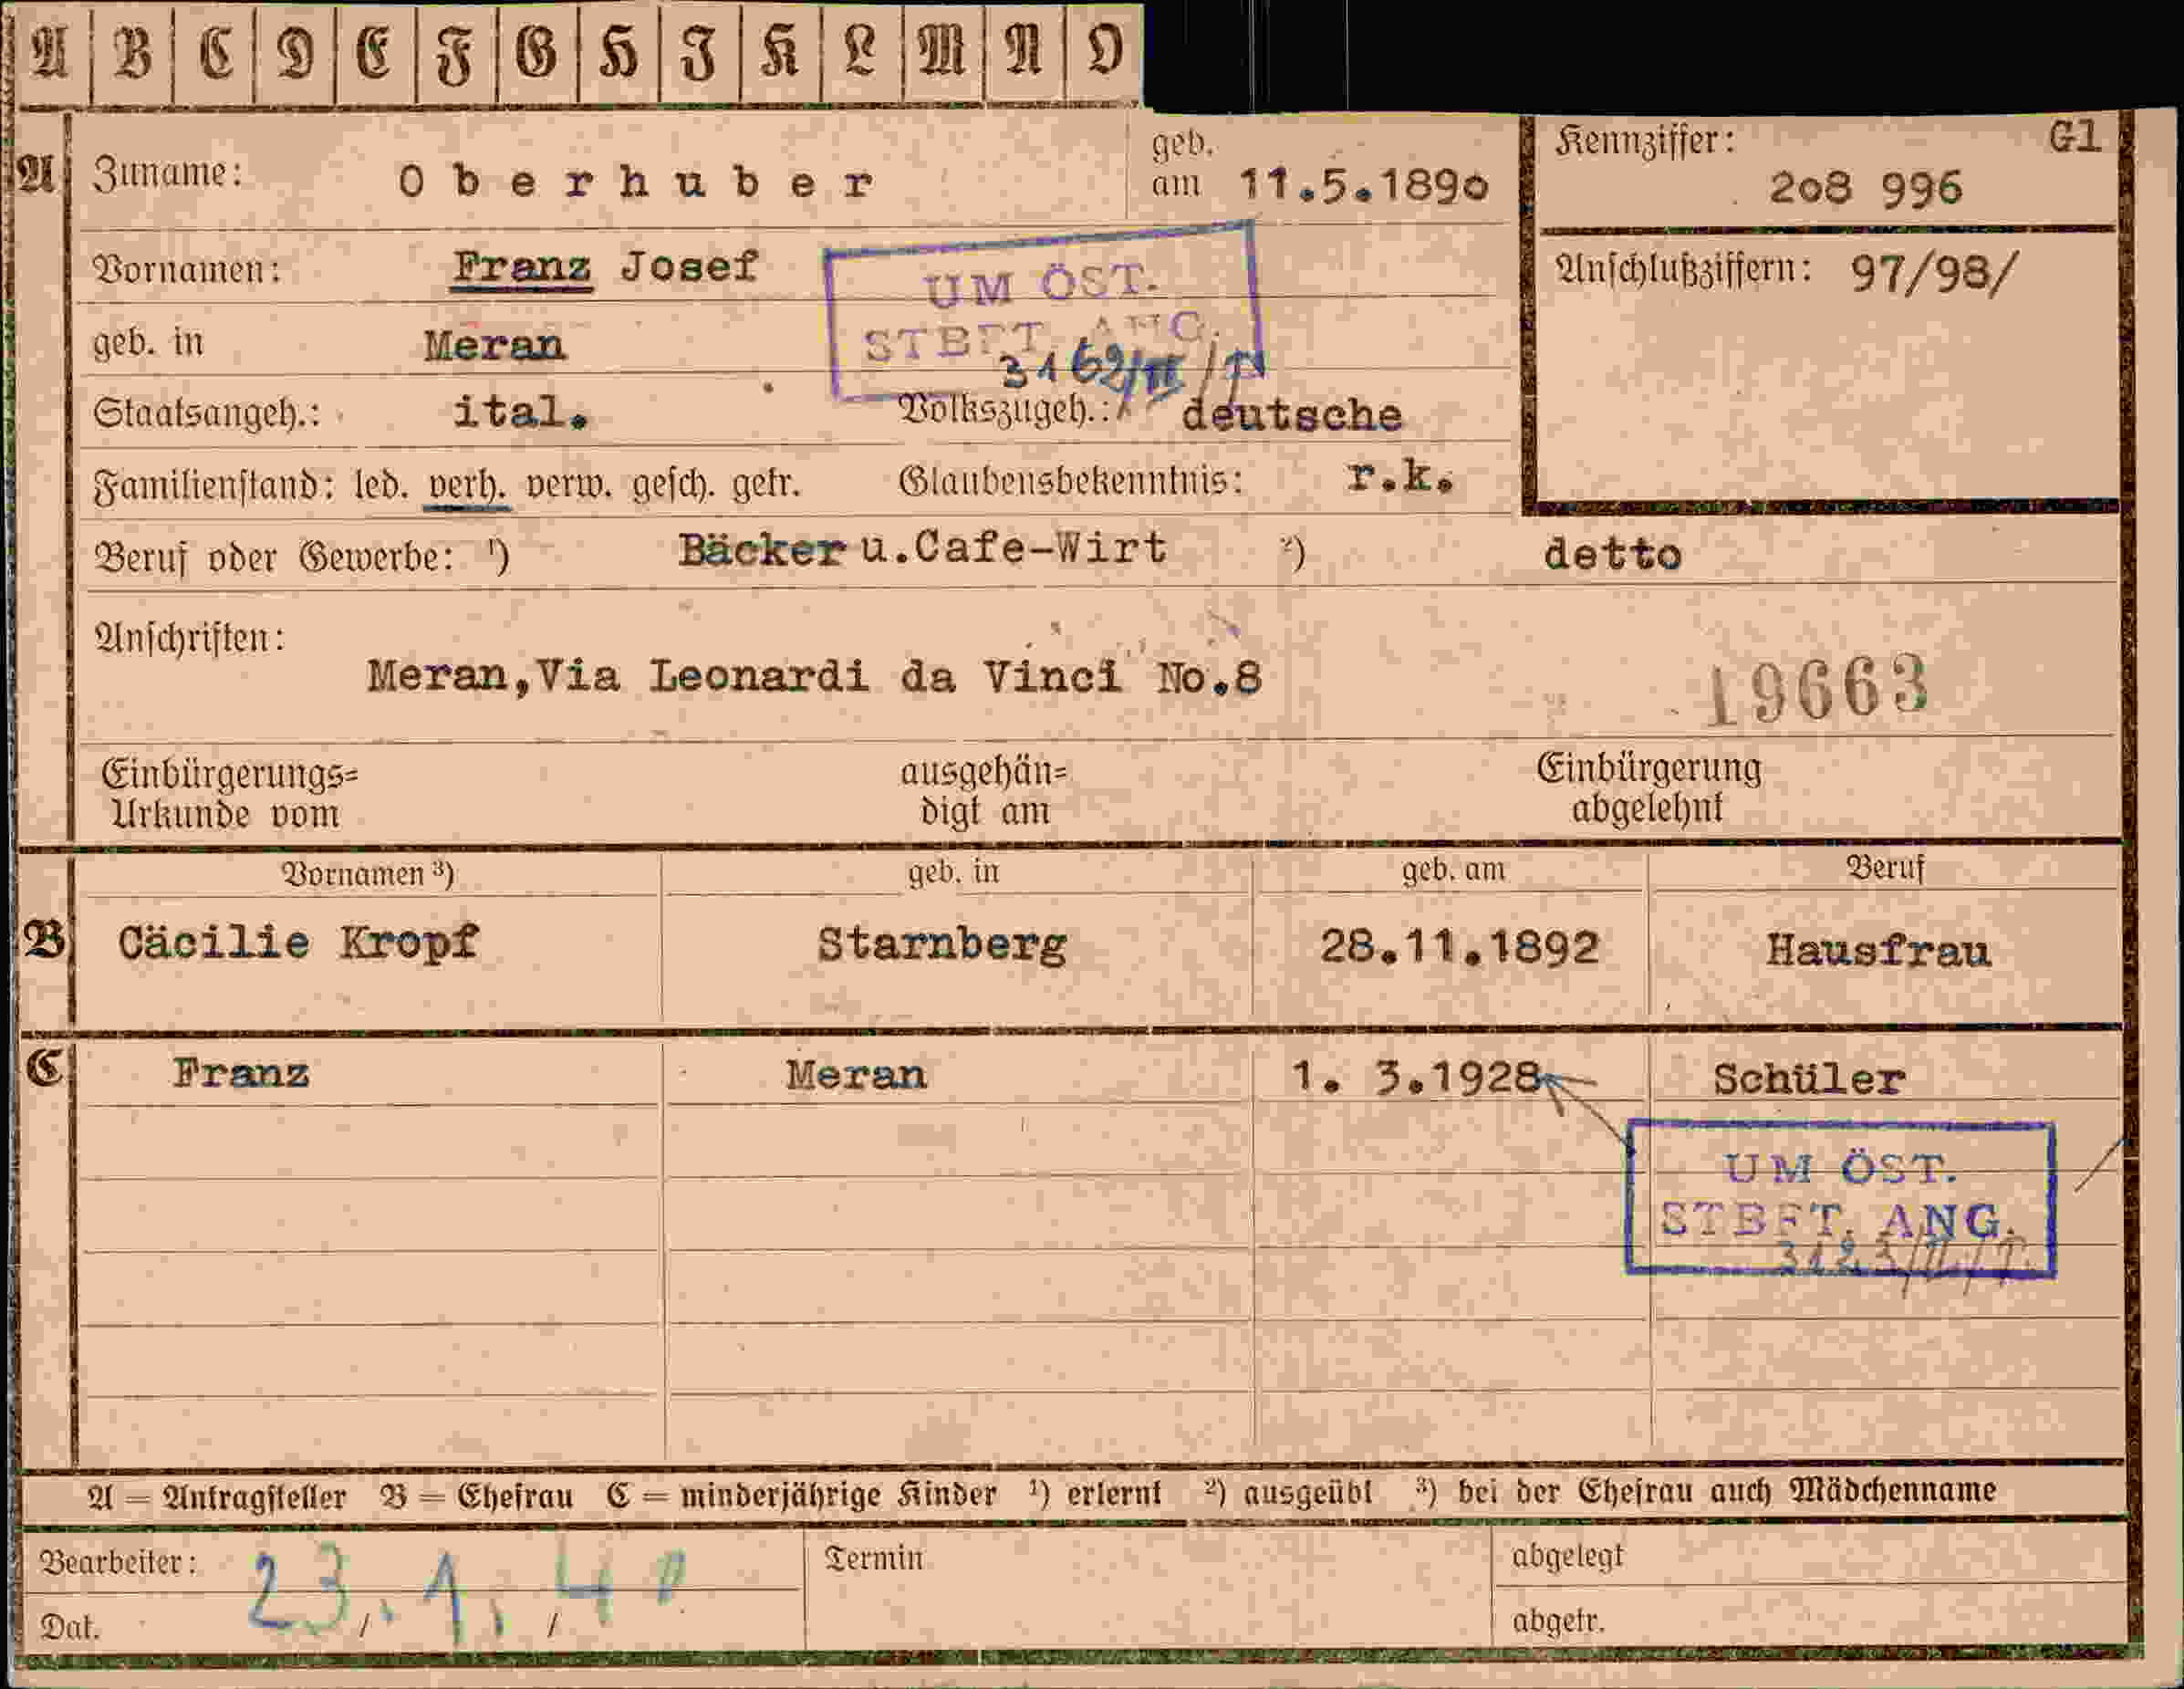 A B C D E F G H I K L M N O
A Zuname: Oberhuber geb. am 11.5.1890
Kennziffer: Gl
208 996
Vornamen: Franz Josef
Anschlußziffern: 97/98/
UM ÖST.
STBFT. ANG.
3162/III/
geb. in Meran
Staatsangeh.: ital. Volkszugeh.: deutsche
Familienstand: led. verh. verw. gesch. getr. Glaubensbekenntnis: r.k.
Beruf oder Gewerbe: ¹) Bäcker u.Cafe-Wirt ²) detto
Anschriften:
Meran,Via Leonardi da Vinci No.8
19663
Einbürgerungs=
Urkunde vom
ausgehän=
digt am
Einbürgerung
abgelehnt
Vornamen ³) geb. in geb. am Beruf
B Cäcilie Kropf Starnberg 28.11.1892 Hausfrau
C Franz Meran 1. 3.1928 Schüler
UM ÖST.
STBFT. ANG.
A = Antragsteller B = Ehefrau C = minderjährige Kinder ¹) erlernt ²) ausgeübt ³) bei der Ehefrau auch Mädchenname
Bearbeiter: Termin abgelegt
23.1.40
Dat. / / abgetr.